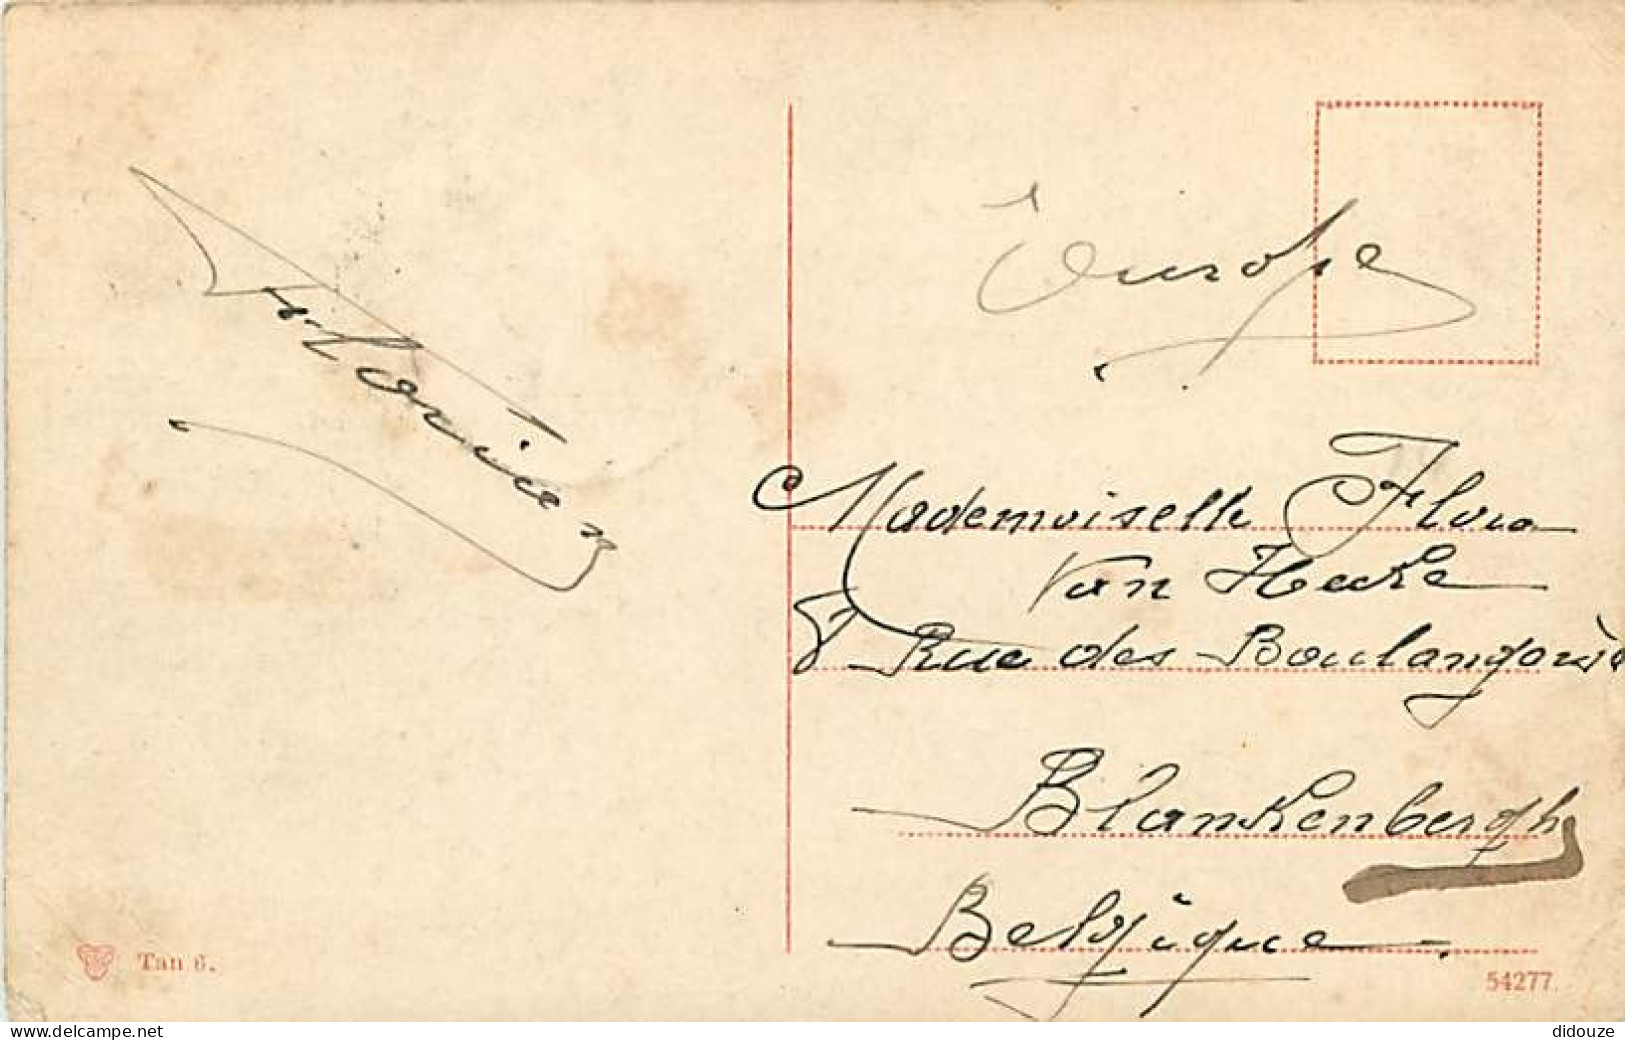 Europe
Mademoiselle Flora
Van Hecke
8 Rue des Boulangers
Blankenbergh
Belgique.
Tan 6.
54277.
www.delcampe.net
didouze